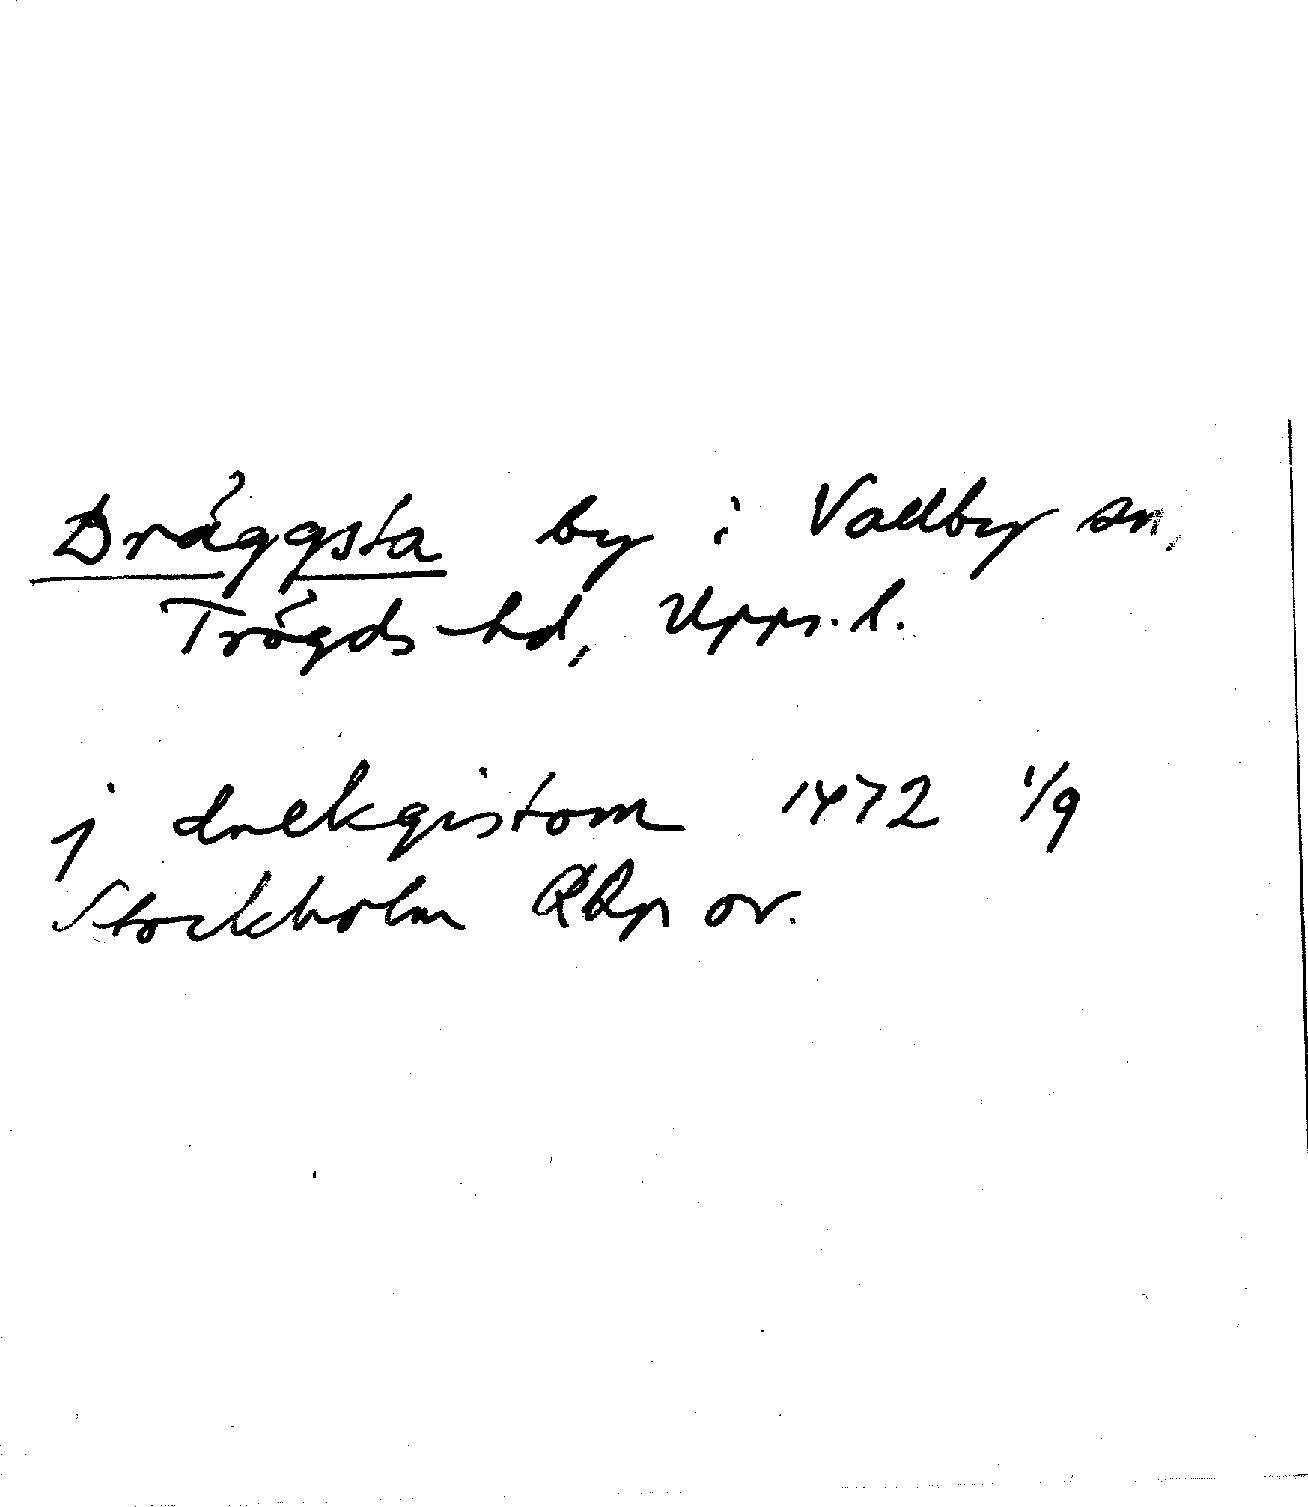 Dräggsta by i Vallby sn,
Trögds hd, Upps. l.
j drekgistom 1472 1/9
Stockholm RAp or.